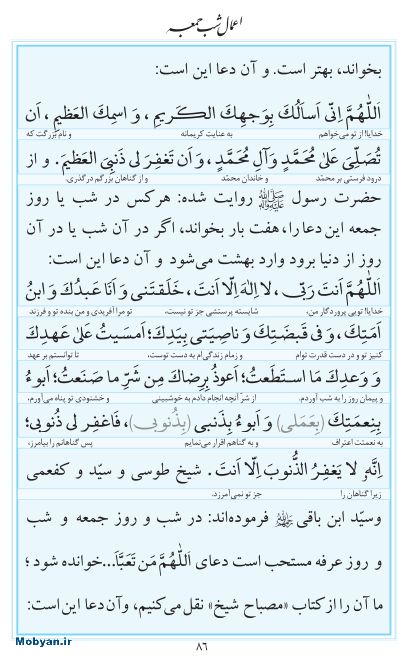 اعمال شب جمعه
بخواند، بهتر است. و آن دعا این است:
اَللّٰهُمَّ اِنّى اَساَلُكَ بِوَجهِكَ الكَريمِ ، وَ اسمِكَ العَظيمِ ، اَن
خدایا! از تو می‌خواهم به عنایت کریمانه و نام بزرگت که
تُصَلِّىَ عَلىٰ مُحَمَّدٍ وَآلِ مُحَمَّدٍ ، وَ اَن تَغفِرَ لى ذَنبِىَ العَظيمَ. و از
درود فرستی بر محمّد و خاندان محمّد و از گناهان بزرگم درگذری.
حضرت رسول ﷺ روایت شده: هرکس در شب یا روز
جمعه این دعا را، هفت بار بخواند، اگر در آن شب یا در آن
روز از دنیا برود وارد بهشت می‌شود و آن دعا این است:
اَللّٰهُمَّ اَنتَ رَبّى، لا اِلٰهَ اِلّا اَنتَ، خَلَقتَنى وَ اَنَا عَبدُكَ وَ ابنُ
خدایا! تویی پروردگار من، شایسته پرستشی جز تو نیست، تو مرا آفریدی و من بنده تو و فرزند
اَمَتِكَ، وَ فى قَبضَتِكَ وَ ناصِيَتى بِيَدِكَ؛ اَمسَيتُ عَلىٰ عَهدِكَ
کنیز تو و در دست قدرت توام و زمام زندگی‌ام به دست توست، تا توانستم بر عهد
وَ وَعدِكَ مَا استَطَعتُ؛ اَعوذُ بِرِضاكَ مِن شَرِّ ما صَنَعتُ؛ اَبوءُ
و پیمان روز را به شب آوردم. از شر آنچه انجام دادم به خوشبینی و خشنودی تو پناه می‌آورم،
بِنِعمَتِكَ (بِعَمَلى) وَ اَبوءُ بِذَنبى (بِذُنوبى)، فَاغفِر لى ذُنوبى؛
به نعمتت اعتراف و به گناهم اقرار می‌نمایم پس گناهانم را بیامرز،
اِنَّهُ لا يَغفِرُ الذُّنوبَ اِلّا اَنتَ . شیخ طوسی و سیّد و کفعمی
زیرا گناهان را جز تو نمی‌آمرزد.
وسیّد ابن باقی فرموده‌اند: در شب و روز جمعه و شب
و روز عرفه مستحب است دعای اَللّٰهُمَّ مَن تَعَبَّاَ...خوانده شود ؛
ما آن را از کتاب «مصباح شیخ» نقل می‌کنیم، وآن دعا این است:
Mobyan.ir
۸۶